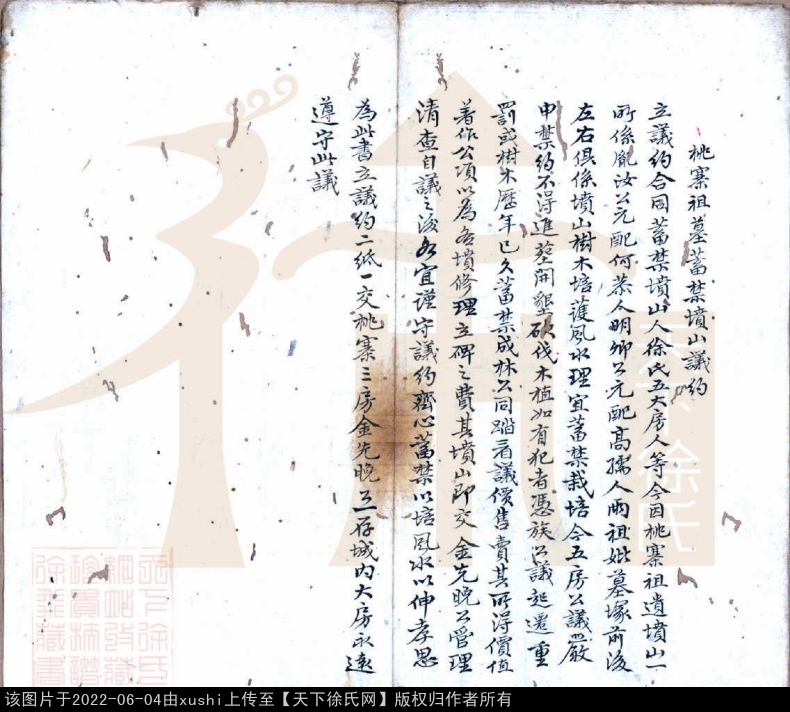 桃寨祖墓蓄禁墳山議約
立議約合同蓄禁墳山人徐氏五大房人等今因桃寨祖遺墳山一
所係胤汝公元配何恭人明卿公元配高孺人兩祖妣墓塚前後
左右俱係墳山樹木培護風水理宜蓄禁栽培今五房公議嚴
申禁約不得進葬開墾砍伐木植如有犯者憑族公議起遷重
罰或樹木歷年已久蓄禁成林公同踏看議價售賣其所得價值
著作公項以為各墳修理立碑之費其墳山即交金先晚公管理
清查自議之後各宜謹守議約齊心蓄禁以培風水以伸孝思
為此書立議約二紙一交桃寨三房金先晚一存城內大房永遠
遵守此議
天下徐氏
该图片于2022-06-04由xushi上传至【天下徐氏网】版权归作者所有